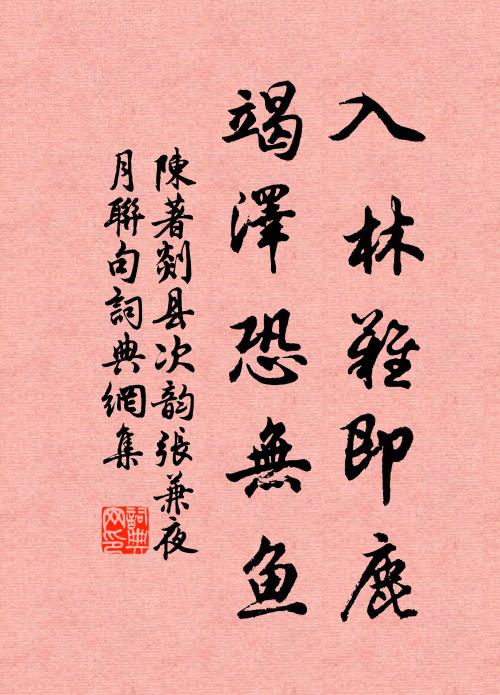 入林難即鹿
竭澤恐無魚
陳著剡县次韵张兼夜
月聯句詞典網集
詞典網印